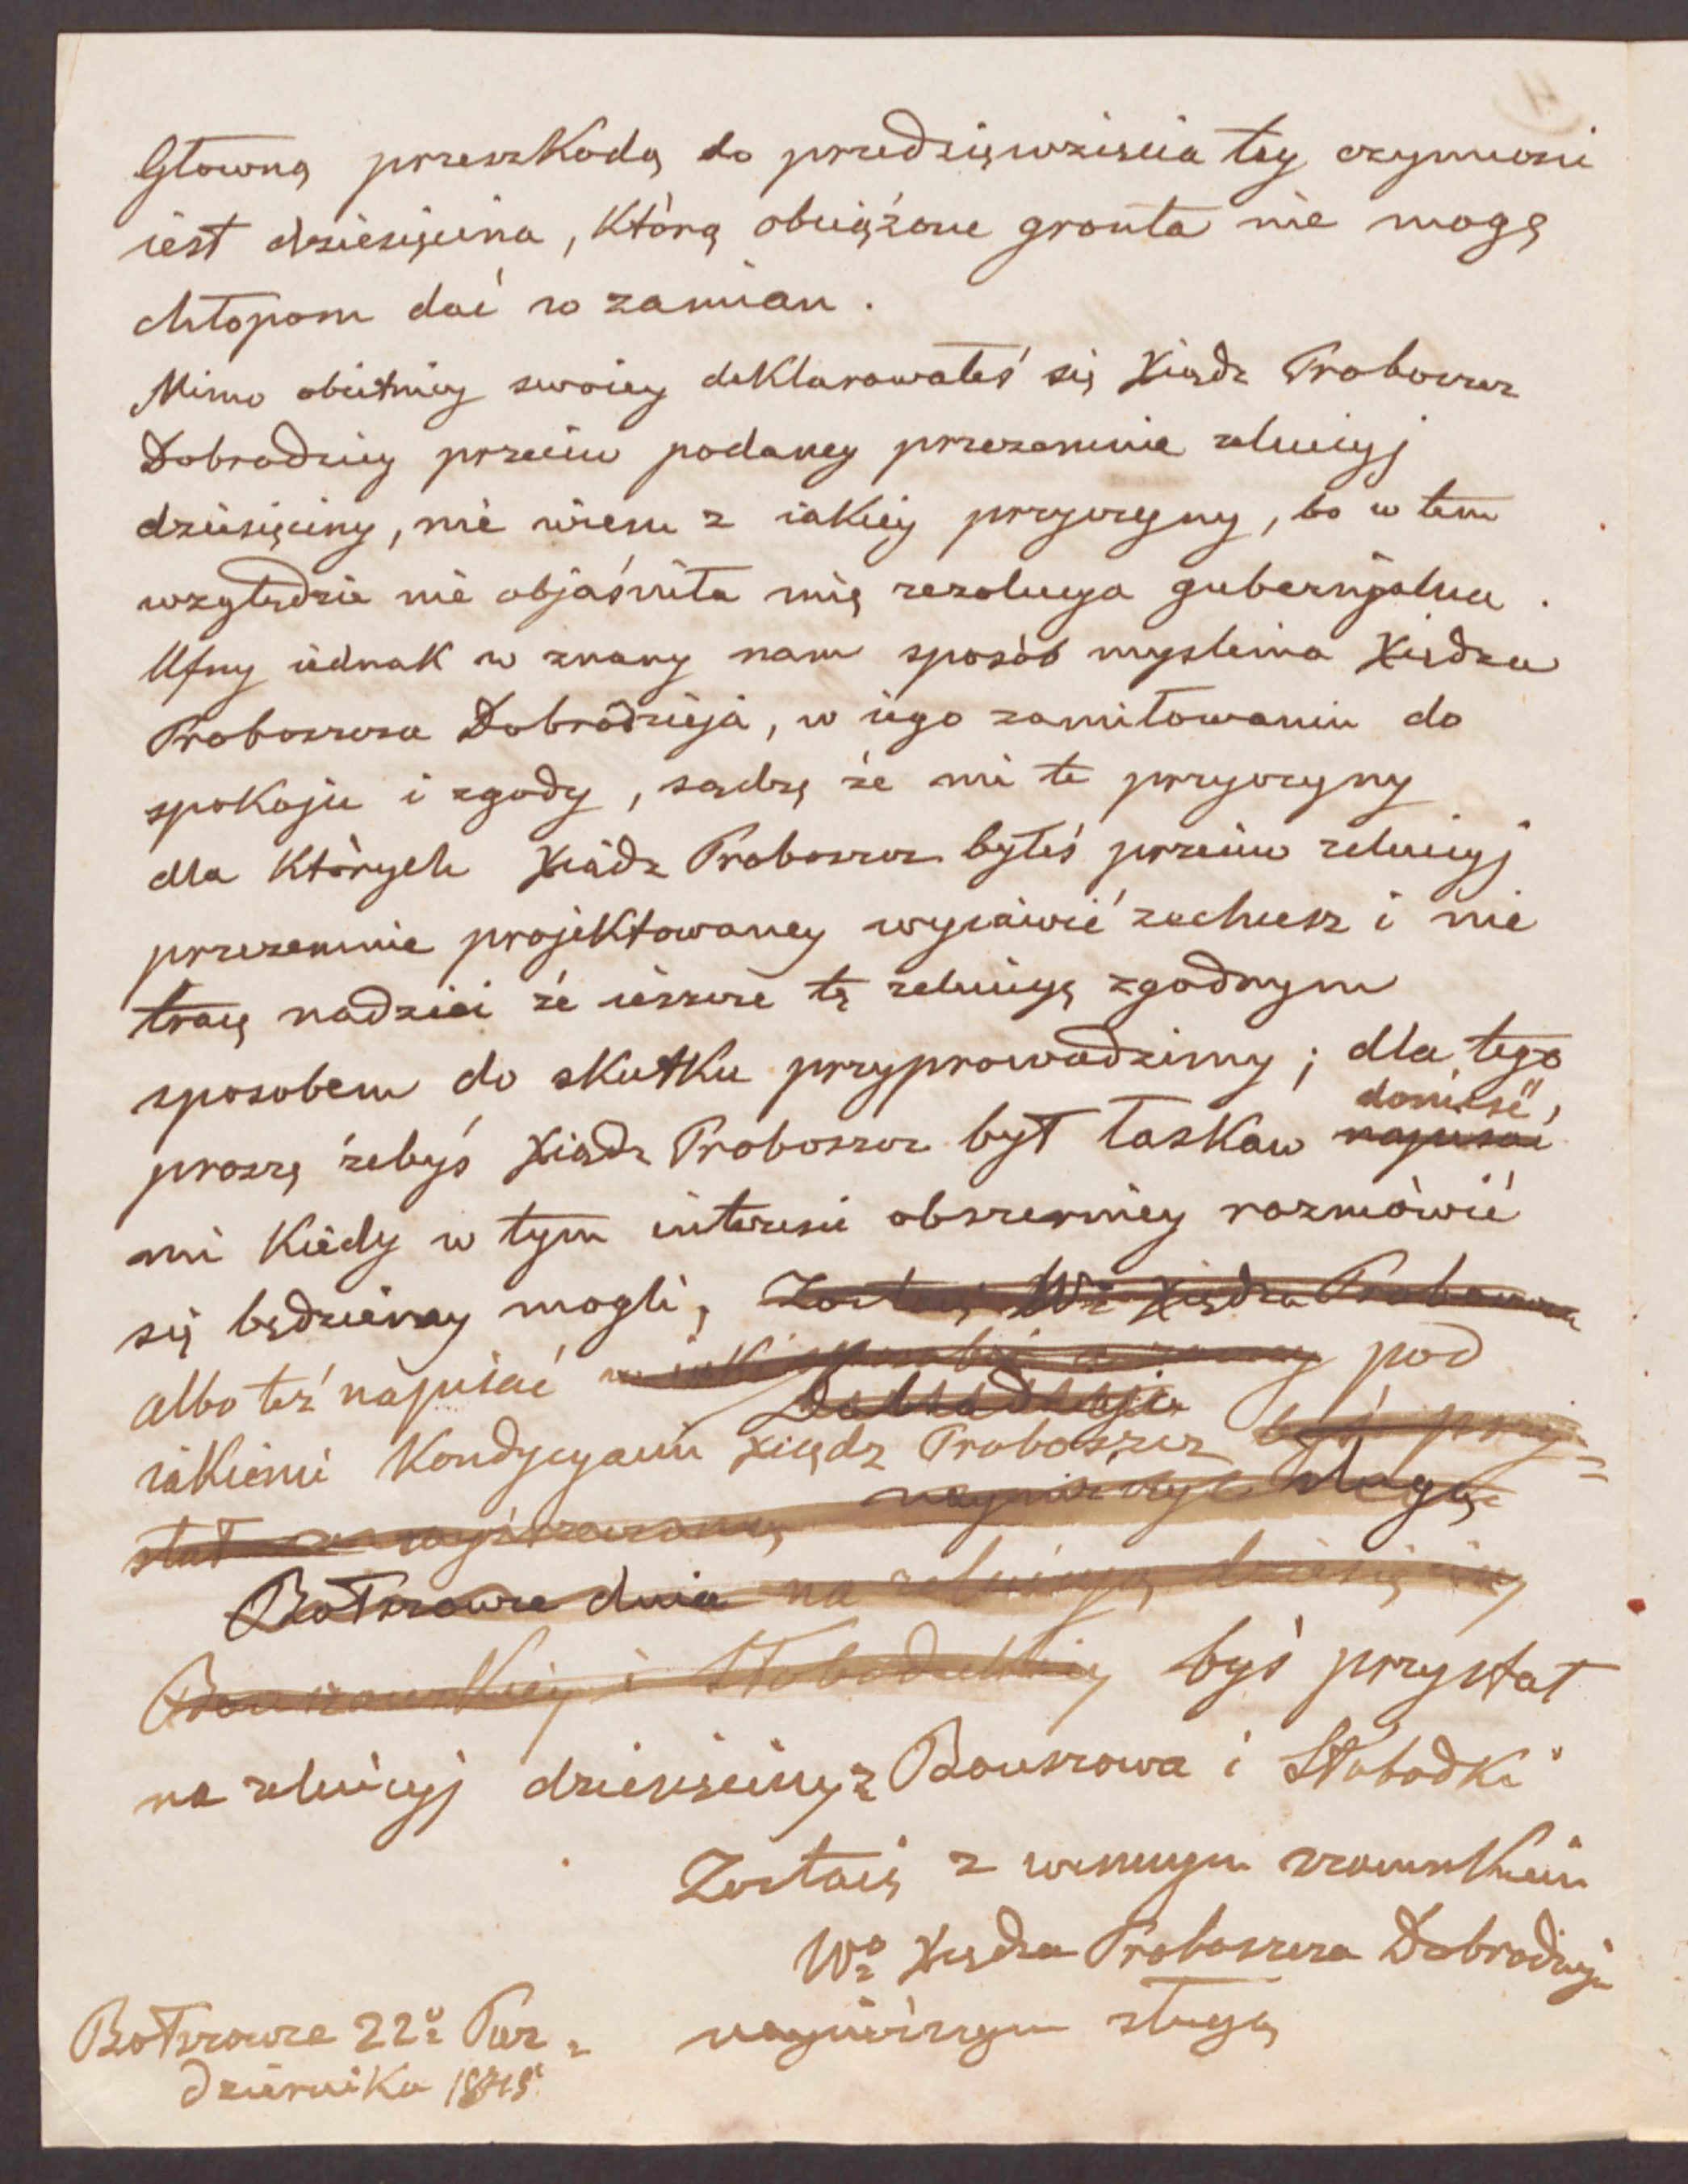 Głowną przeszkodą do przedsięwzięcia tey czynnosci
iest dziesięcina, którą obciążone gronta nie mogę
chłopom dać w zamian.
Mimo obietnicy swoiey deklarowałeś się Xiądz Proboszcz
Dobrodziey przeciw podaney przezemnie reluicyj
dziesięciny, nie wiem z iakiey przyczyny, bo w tem
względzie nie objaśniła mię rezolucya gubernjalna.
Ufny iednak w znany nam sposób myslenia Xiędza
Proboszcza Dobrodzieja, w iego zamiłowaniu do
spokoju i zgody, sądzę że mi te przyczyny
dla których Xiądz Proboszcz byłeś przeciw reluicyj
przezemnie projektowaney wyiawić zechcesz i nie
tracę nadziei że ieszcze tę reluicyę zgodnym
sposobem do skutku przyprowadzimy; dla tego
donieść,
proszę żebyś Xiądz Proboszcz był łaskaw napisać
mi kiedy w tym interesie obszerniey rozmówić
się będziemy mogli, Zostaię Wo Xiędza Proboszcza
albo też napisać pod
Dobrodzieja
iakiemi kondycyami Xiądz Proboszcz byś przy=
stał sługą
Bołszowce dnia na reluicyę dziesięciny
Bouszowskiey i Słobodzkiey byś przystał
na reluicyj dziesięciny z Bouszowa i Słobodki
Zostaię z winnym szacunkiem
Wo Xiędza Proboszcza Dobrodzieja
nayniższym sługą
Bołszowce 22o Paz=
dziernika 1845